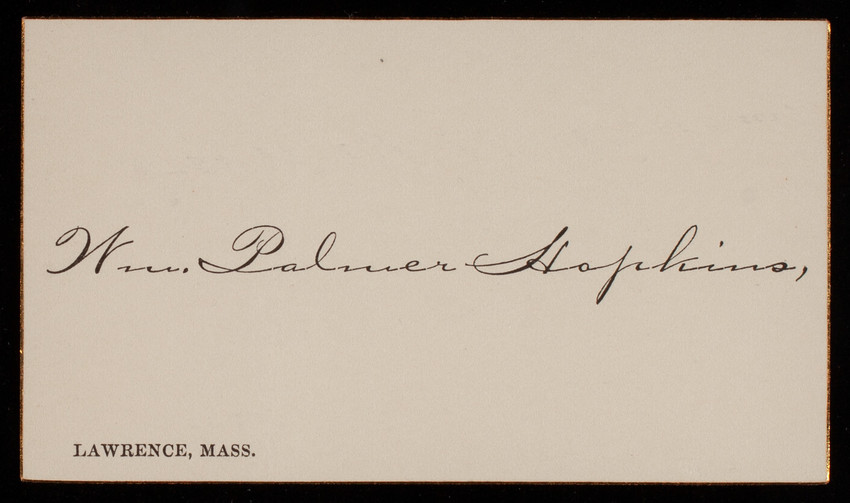 Wm. Palmer Hopkins,
LAWRENCE, MASS.